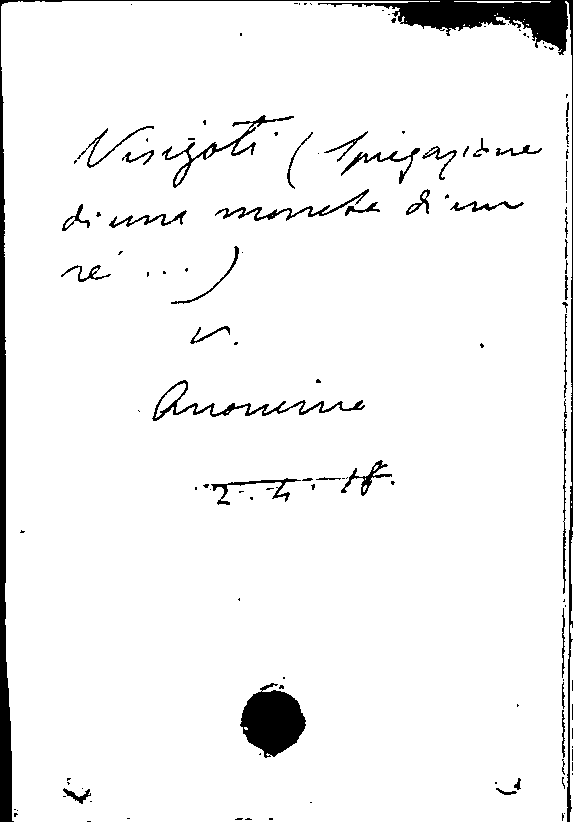 Visigoti (Spiegazione
di una moneta di un
re ...)
v.
Anonimo
2. 4. 18.